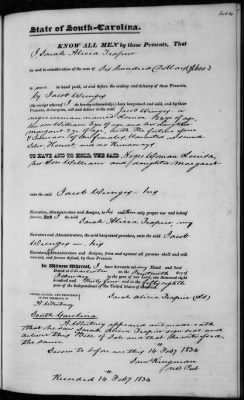 State of South-Carolina.
KNOW ALL MEN by these Presents, That
I Sarah Alicia Trapier
for and in consideration of the sum of Six hundred Dollars
to me in hand paid, at and before the sealing and delivery of these Presents,
by Jacob Wenges
(the receipt whereof I do hereby acknowledge) have bargained and sold, and by these
Presents, do bargain, sell and deliver to the said Jacob Wenges a
negro woman named Louisa years of age
her son William years of age and her daughter
Margaret
Sober Honest, and no Runaway
TO HAVE AND TO HOLD, THE SAID Negro Woman Louisa,
her Son William and daughter Margaret
unto the said Jacob Wenges his
Executors, Administrators and Assigns, to his and their only proper use and behoof
forever. And I the said Sarah Alicia Trapier my
Executors and Administrators, the said bargained premises, unto the said Jacob
Wenges his
Executors, Administrators and Assigns, from and against all persons shall and will
warrant, and forever defend, by these Presents.
In Witness Whereof, I have hereunto set my Hand and Seal
Dated at Charleston on the day of
February in the year of our Lord one thousand eight
hundred and thirty four and in the fifty eighth
year of the Independence of the United States of America.
Sarah Alicia Trapier (LS)
SIGNED, SEALED, AND DELIVERED
IN THE PRESENCE OF
South Carolina
appeared and made oath
that he saw Sarah Alicia Trapier execute
this Bill of Sale and that he witnessed
the same
Sworn to before me this 14 Feby 1834
Recorded 14 Feby 1834